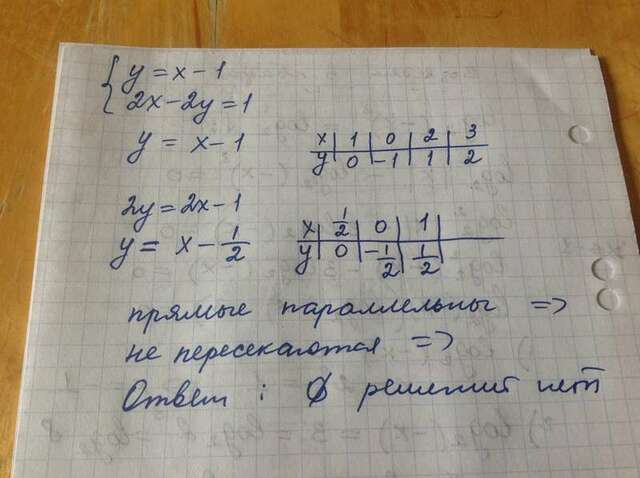 { y = x - 1
2x - 2y = 1
y = x - 1
x | 1 | 0 | 2 | 3
y | 0 | -1 | 1 | 2
2y = 2x - 1
y = x - 1/2
x | 1/2 | 0 | 1 |
y | 0 | -1/2 | 1/2 |
прямые параллельны =>
не пересекаются =>
Ответ : ∅ решений нет